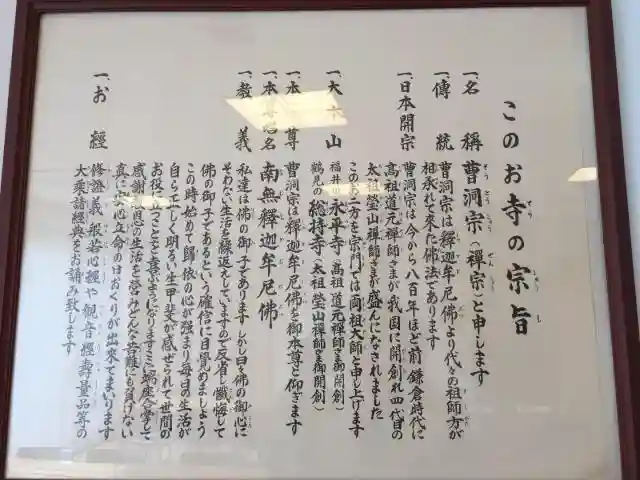 このお寺の宗旨
一、名稱 曹洞宗(禪宗)と申します
一、傳統 曹洞宗は釋迦牟尼佛より代々の祖師方が
相承れて来た佛法であります
一、日本開宗 曹洞宗は今から八百年ほど前鎌倉時代に
高祖道元禪師さまが我国に開創され四代目の
太祖瑩山禪師さまが盛んになされました
このお二方を宗門では両祖大師と申し上げます
一、大本山 福井の永平寺(高祖道元禪師さま御開創)
鶴見の總持寺(太祖瑩山禪師さま御開創)
一、本尊 曹洞宗は釋迦牟尼佛を御本尊と仰ぎます
一、本尊唱名 南無釋迦牟尼佛
一、教義 私達は佛の御子でありますしかし日々佛の御心に
そわない生活を繰返えしていますので反省し懺悔して
佛の御子であるという確信に目覚めましよう
この時始めて帰依の心が強まり毎日の生活が
自ら正しく明るく生甲斐が感ぜられて世間の
お役に立つことを喜ぶようになりますここに端座合掌して
感謝報恩の生活を営みどんな苦難にも負けない
真に安心立命の日おくりが出来てまいります
一、お經 修證義般若心經や観音經壽量品等の
大乗諸經典をお讀み致します